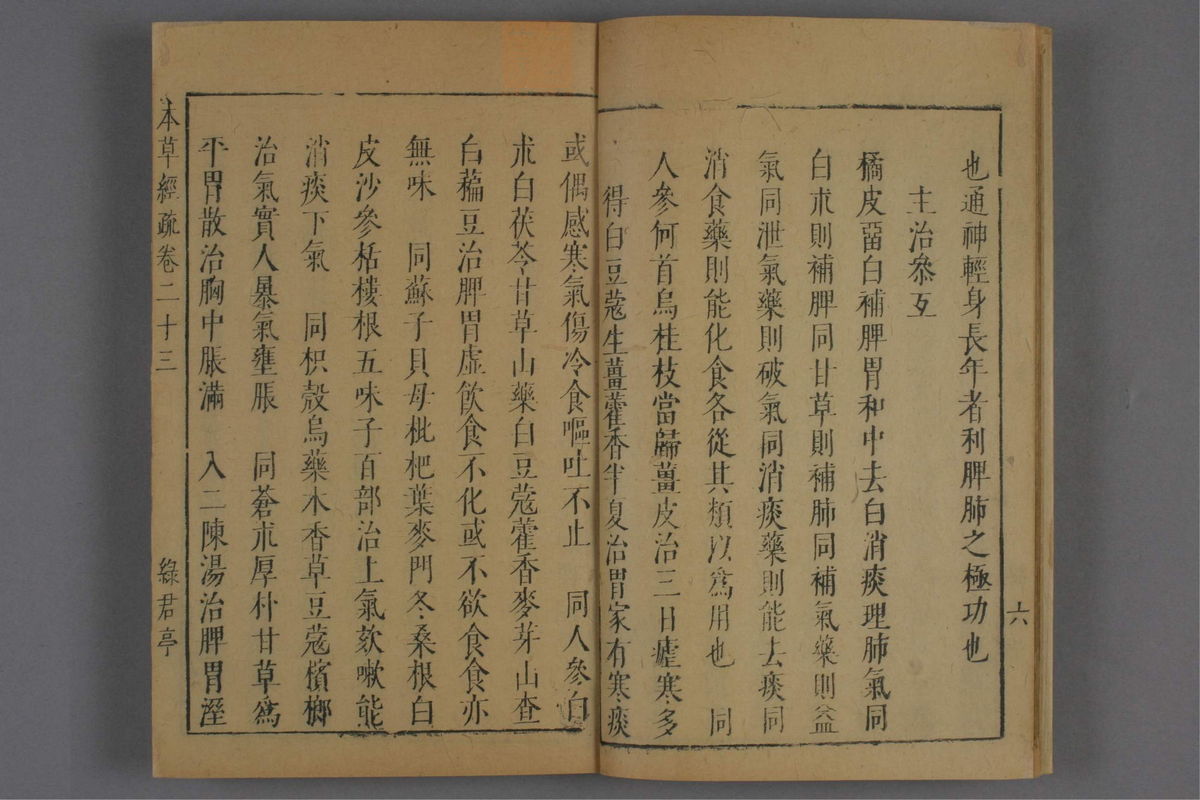 也通神輕身長年者利脾肺之極功也
主治叅互
橘皮畱白補脾胃和中去白消痰理肺氣同
白朮則補脾同甘草則補肺同補氣藥則益
氣同泄氣藥則破氣同消痰藥則能去痰同
消食藥則能化食各從其類以爲用也 同
人參何首烏桂枝當歸薑皮治三日瘧寒多
得白豆蔻生薑藿香半夏治胃家有寒痰
六
或偶感寒氣傷冷食嘔吐不止 同人參白
朮白茯苓甘草山藥白豆蔻藿香麥芽山查
白藊豆治脾胃虛飲食不化或不欲食食亦
無味 同蘇子貝母枇杷葉麥門冬桑根白
皮沙參栝樓根五味子百部治上氣欬嗽能
消痰下氣 同枳殼烏藥木香草豆蔻檳榔
治氣實人暴氣壅脹 同蒼朮厚朴甘草爲
平胃散治胸中脹滿 入二陳湯治脾胃溼
本草經疏卷二十三
綠君亭